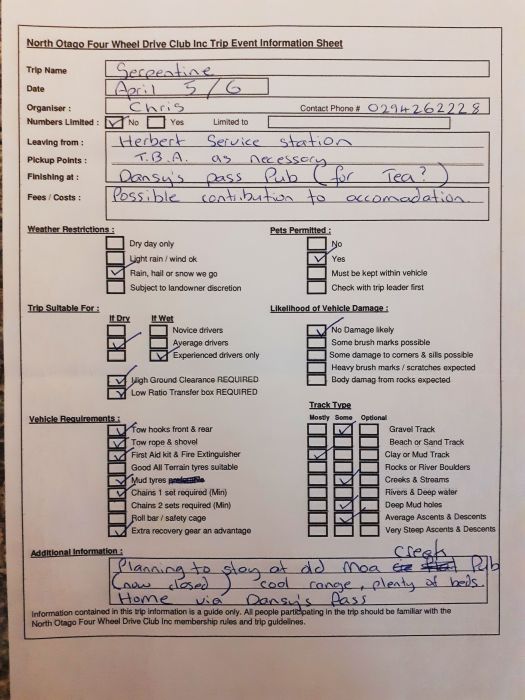 North Otago Four Wheel Drive Club Inc Trip Event Information Sheet
Trip Name Serpentine
Date April 5/6
Organiser : Chris Contact Phone # 0294262228
Numbers Limited : No Yes Limited to
Leaving from : Herbert Service station
Pickup Points : T.B.A. as necessary
Finishing at : Dansy's pass Pub (for Tea?)
Fees / Costs : Possible contribution to accomadation
Weather Restrictions : Pets Permitted :
Dry day only No
Light rain / wind ok Yes
Rain, hail or snow we go Must be kept within vehicle
Subject to landowner discretion Check with trip leader first
Trip Suitable For : Likelihood of Vehicle Damage :
If Dry If Wet
Novice drivers No Damage likely
Average drivers Some brush marks possible
Experienced drivers only Some damage to corners & sills possible
Heavy brush marks / scratches expected
High Ground Clearance REQUIRED Body damag from rocks expected
Low Ratio Transfer box REQUIRED
Track Type
Vehicle Requirements : Mostly Some Optional
Tow hooks front & rear Gravel Track
Tow rope & shovel Beach or Sand Track
First Aid kit & Fire Extinguisher Clay or Mud Track
Good All Terrain tyres suitable Rocks or River Boulders
Mud tyres preferable Creeks & Streams
Chains 1 set required (Min) Rivers & Deep water
Chains 2 sets required (Min) Deep Mud holes
Roll bar / safety cage Average Ascents & Descents
Extra recovery gear an advantage Very Steep Ascents & Descents
Additional Information : Creek
Planning to stay at old Moa Pub
(now closed) cool range, plenty of beds.
Home via Dansy's Pass
Information contained in this trip information is a guide only. All people participating in the trip should be familiar with the
North Otago Four Wheel Drive Club Inc membership rules and trip guidelines.